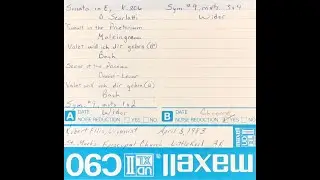 Sonata in E, K. 206
D. Scarlatti
Tumult in the Praetorium
Maleingreau
Valet will ich dir geben (2)
Bach
Bach
Valet will ich dir geben
Bach
Sym. #9, mvts. 1 & 2
Widor
Sym. #9, mvts. 3 & 4
Widor
A DATE
NOISE REDUCTION YES NO
B DATE
NOISE REDUCTION YES NO
Robert Ellis, Organist
April 8, 1983
St. Mark's Episcopal Church
Little Rock AR
maxell
UD XL II
C90